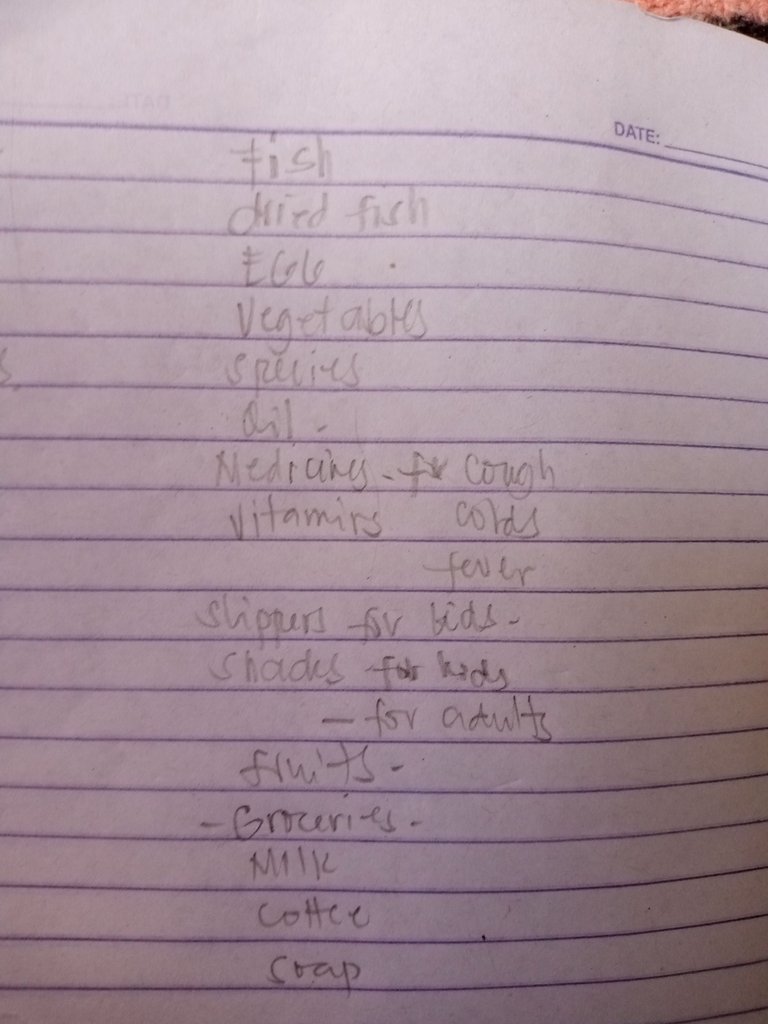 DATE:
Fish
dried fish
EGG
Vegetables
species
Oil -
Medicines - for cough
Vitamins colds
fever
slippers for kids -
shades for kids
- for adults
fruits -
- Groceries -
Milk
Coffee
soap